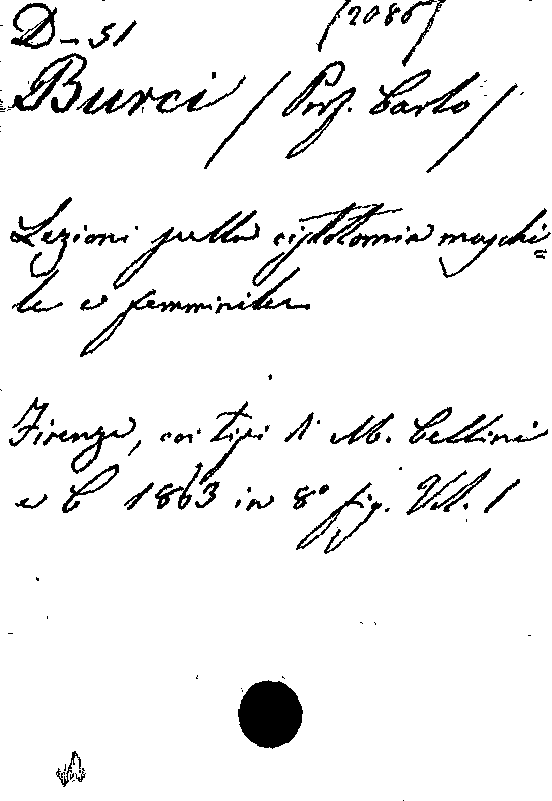 D-51 (2086)
Burci (Prof. Carlo)
Lezioni sulla cistotomia maschi=
le e femminile.
Firenze, coi tipi di M. Cellini
e C 1863 in 8° fig. Vol. 1